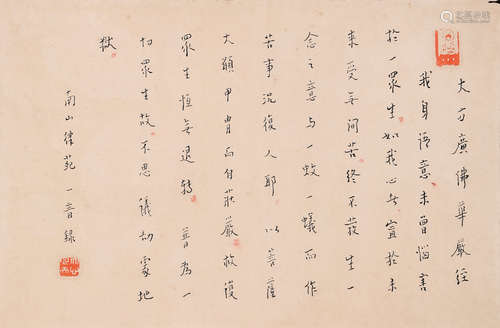 大方廣佛華嚴經
我身語意未曾惱害
於一眾生如我心者寧於未
來受無間苦終不發生一
念之意與一蚊一蟻而作
苦事況復人耶 以菩薩
大願甲冑而自莊嚴救護
眾生恒無退轉 普為一
切眾生故不思議劫處地
獄
南山律苑一音錄